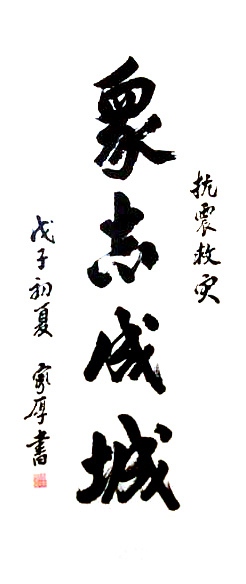 抗震救灾
眾志成城
戊子初夏 家厚書